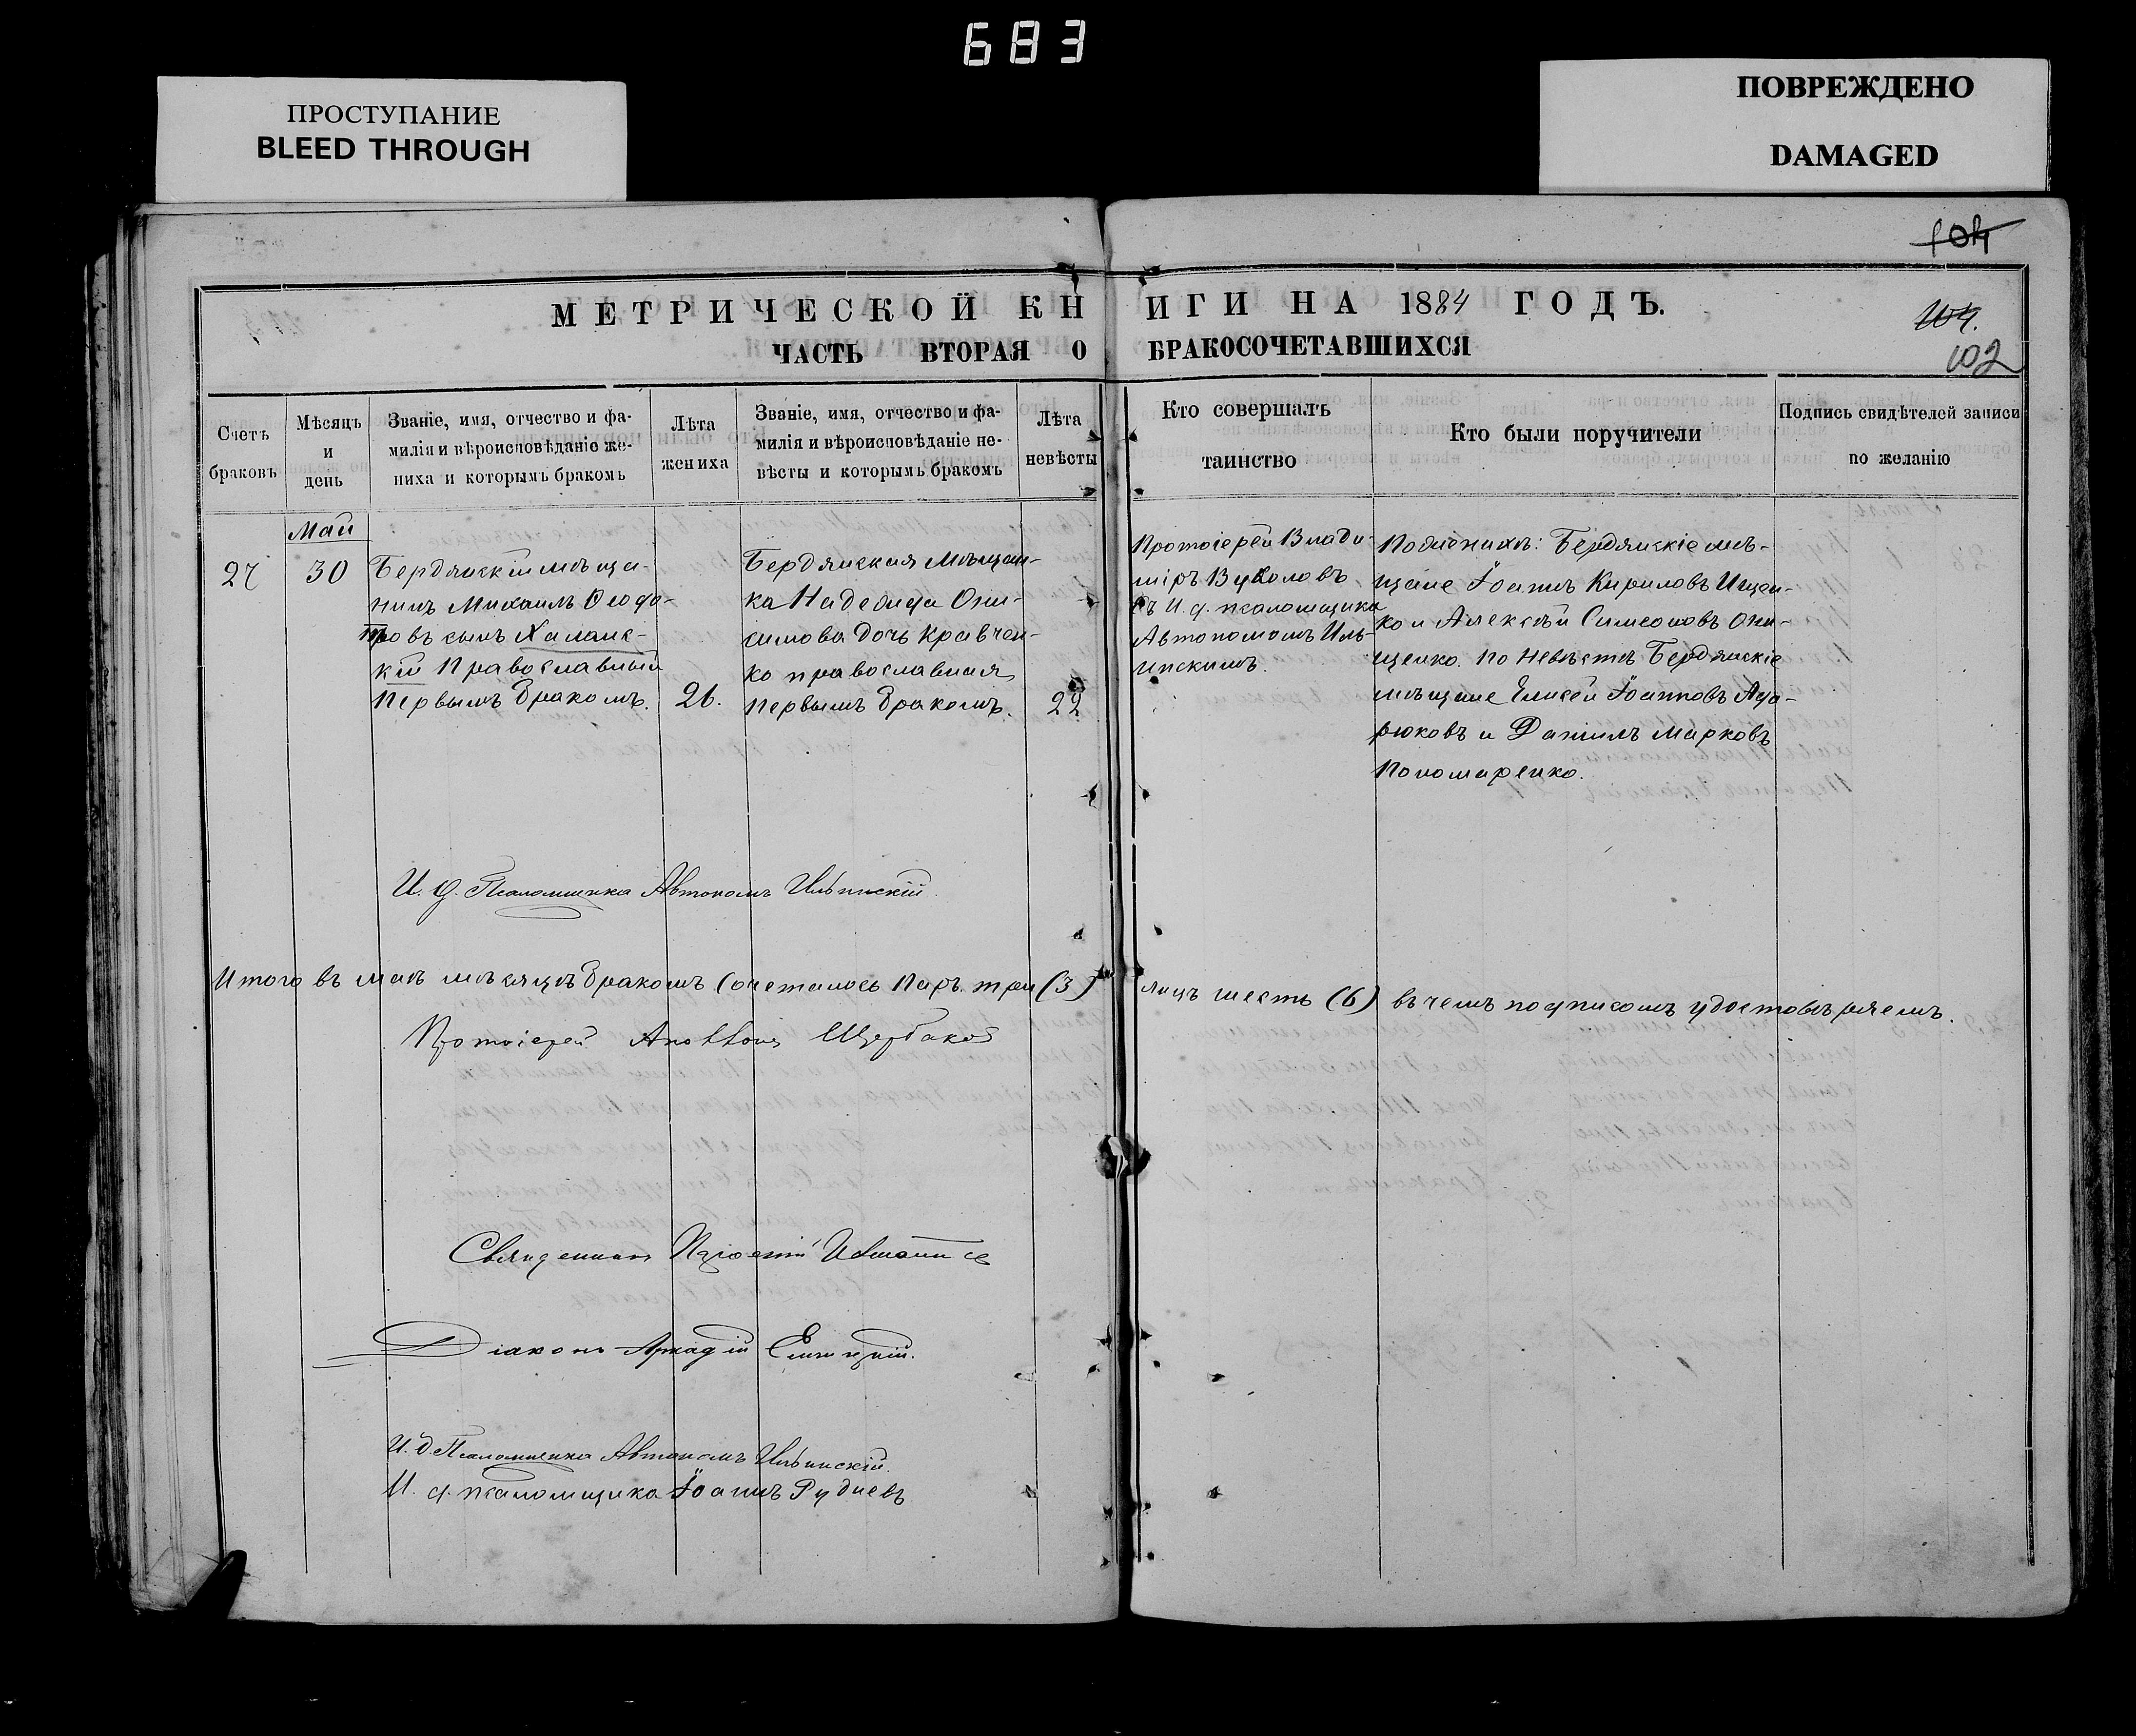 683
ПРОСТУПАНИЕ
BLEED THROUGH
ПОВРЕЖДЕНО
DAMAGED
104
МЕТРИЧЕСКОЙ КНИГИ НА 1884 ГОДЪ.
104.
ЧАСТЬ ВТОРАЯ О БРАКОСОЧЕТАВШИХСЯ
102
Счетъ
браковъ
Мѣсяцъ
и
день
Званіе, имя, отчество и фа-
милія и вѣроисповѣданіе же-
ниха и которымъ бракомъ
Лѣта
жениха
Званіе, имя, отчество и фа-
милія и вѣроисповѣданіе не-
вѣсты и которымъ бракомъ
Лѣта
невѣсты
Кто совершалъ
таинство
Кто были поручители
Подпись свидѣтелей записи
по желанію
27
Май
30
Бердянскій мѣща-
нинъ Михаилъ Ѳеодо-
ровъ сынъ Халанс-
кій Православный
Первымъ бракомъ.
26.
Бердянская Мѣщан-
ка Надежда Они-
симова дочь Кравчен-
ко православная
Первымъ бракомъ.
22
Протоіерей Влади-
міръ Вуколовъ
съ И. д. псаломщика
Автономомъ Иль-
инскимъ.
По женихѣ: Бердянскіе мѣ-
щане Іоаннъ Кириловъ Ищен-
ко и Алексѣй Симеоновъ Они-
щенко. По Невѣстѣ Бердянскіе
мѣщане Елисей Іоанновъ
и Даніилъ Марковъ
Пономаренко.
И. д. Псаломщика Автономъ Ильинскій.
Итого въ маѣ мѣсяцѣ бракомъ сочеталось паръ три (3) лицъ шесть (6) въ чемъ подписомъ удостовѣряемъ.
Протоіерей Щербаков
Священникъ
Діаконъ Аркадій
И. д. Псаломщика Автономъ Ильинскій.
И. д. псаломщика Іоаннъ Рудневъ